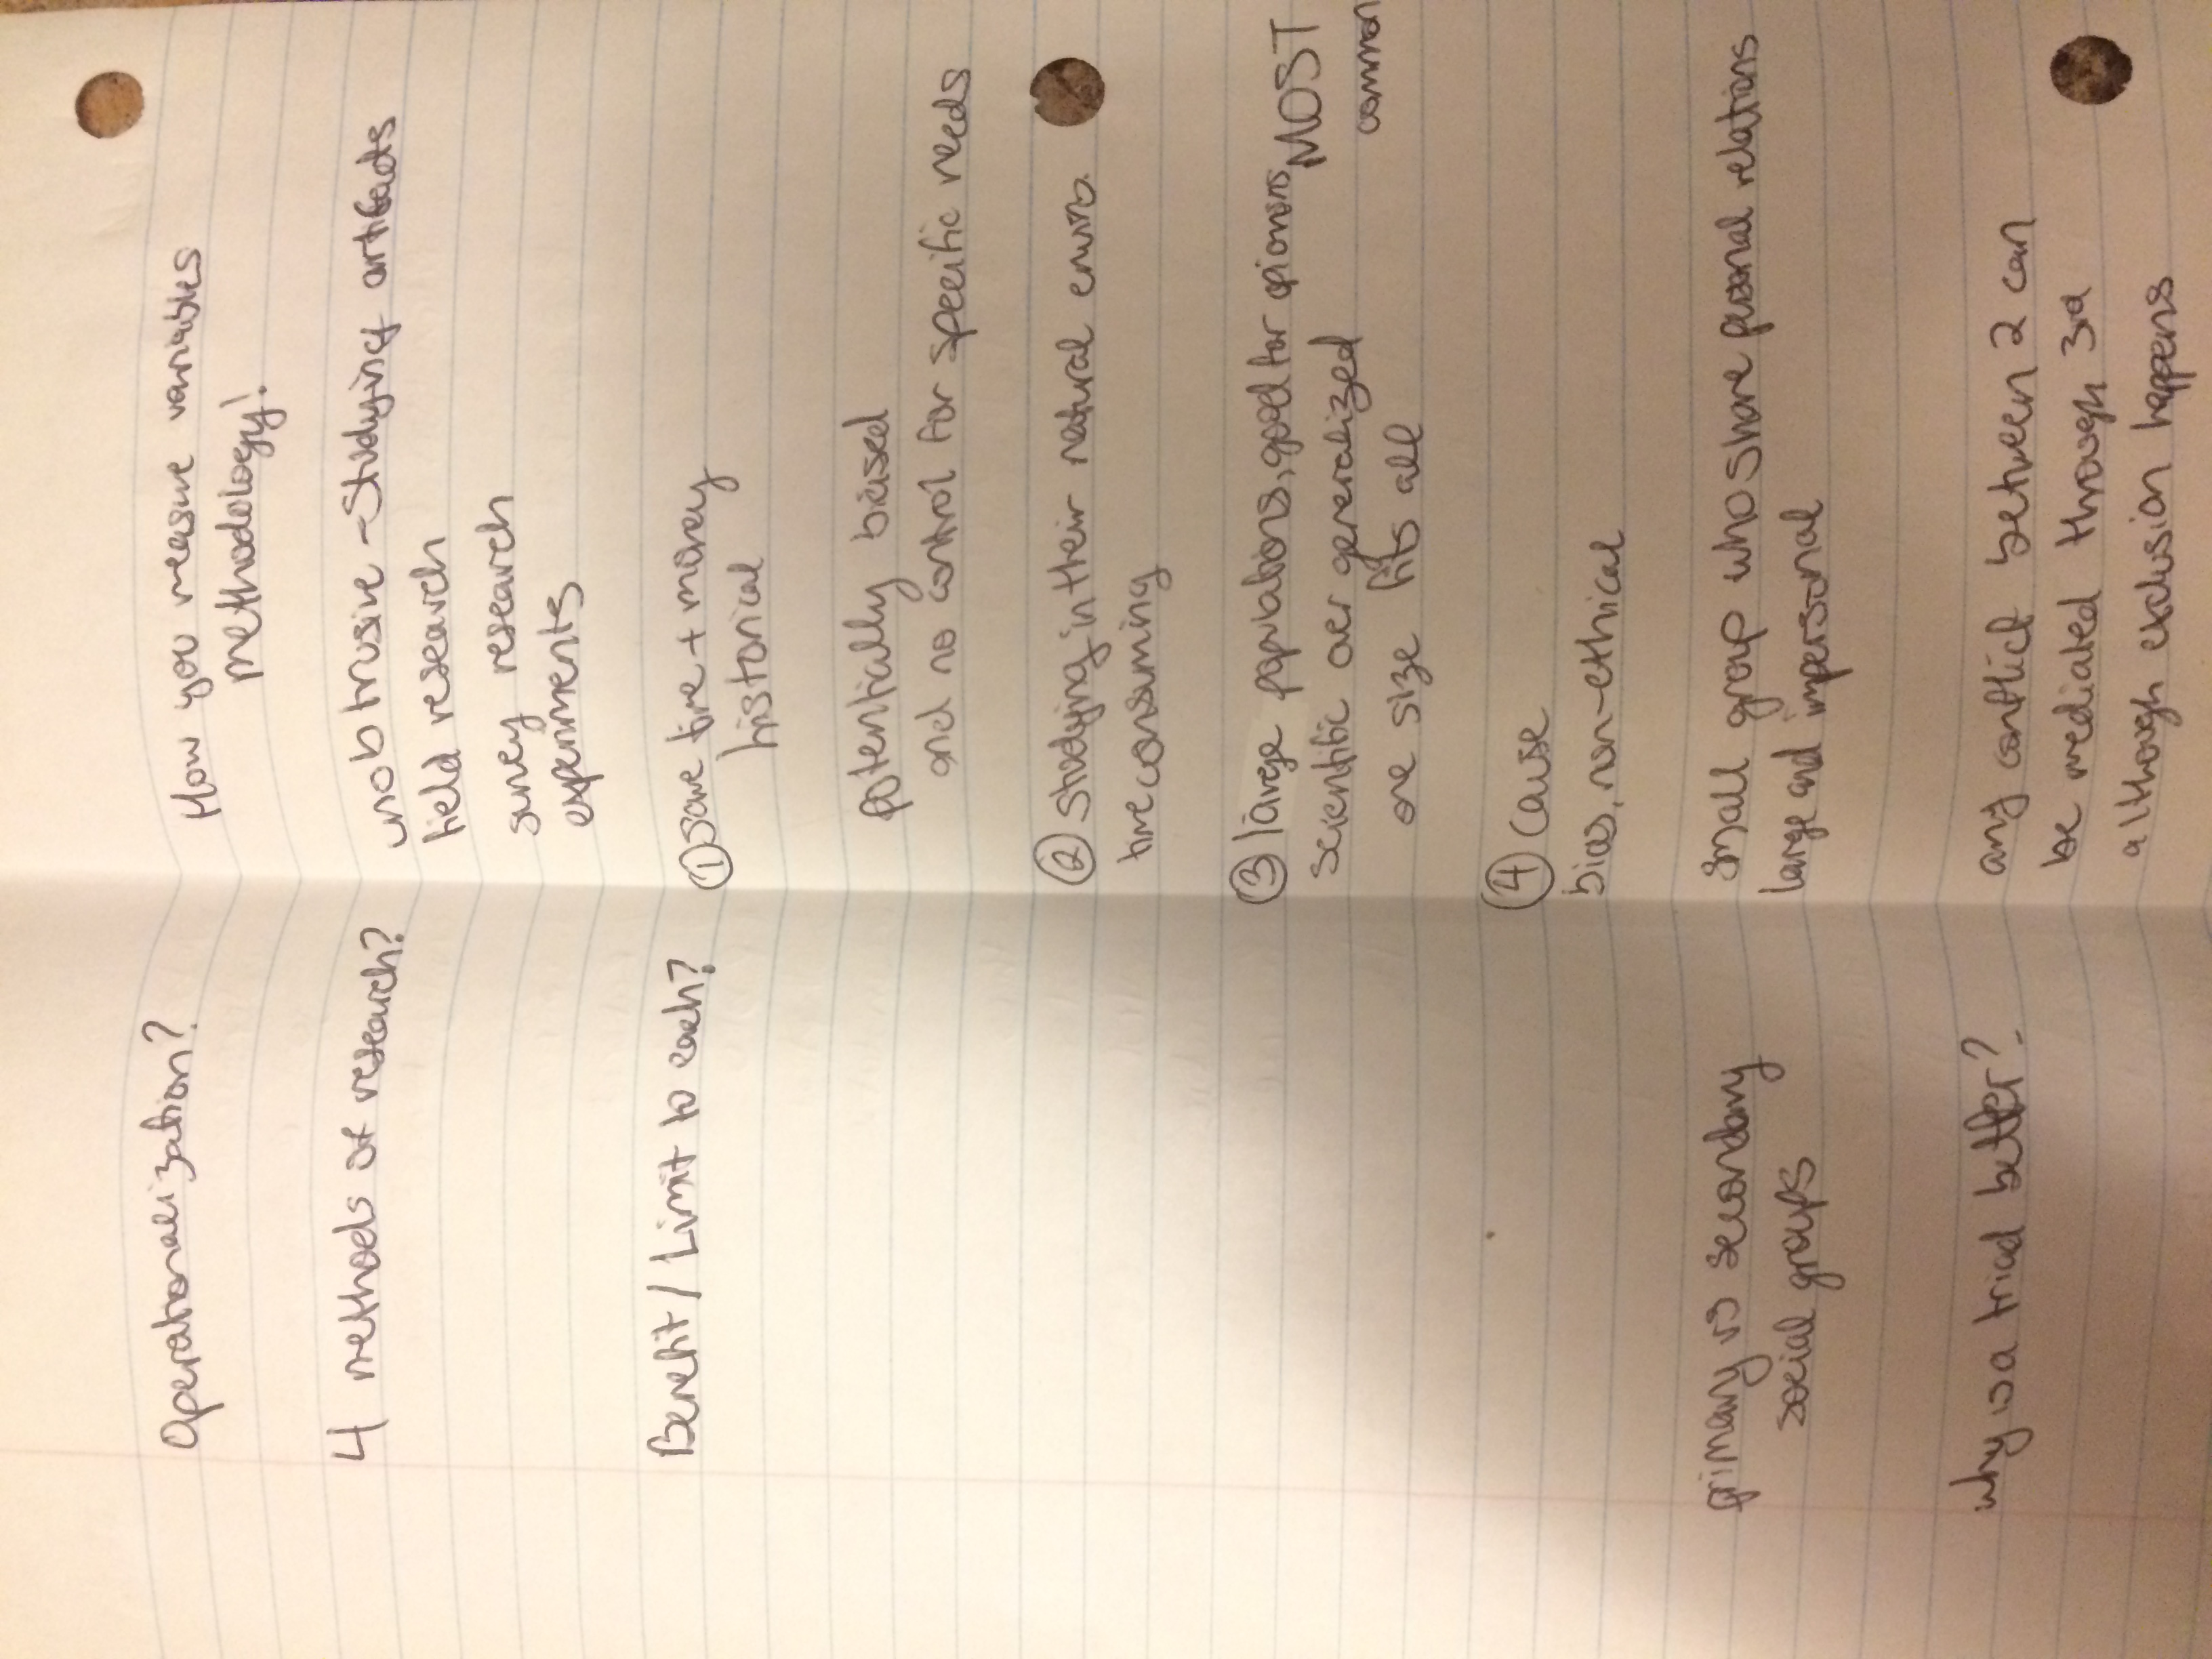 Operationalization?
How you measure variables
methodology!
4 methods of research?
unobtrusive - Studying artifacts
field research
survey research
experiments
Benefit / Limit to each?
① save time + money
historical
potentially biased
and no control for specific needs
② studying in their natural enviro.
time consuming
③ large populations, good for opionons, MOST
common
scientific over generalized
one size fits all
④ cause
bias, non-ethical
primary vs secondary
social groups
small group who share personal relations
large and impersonal
why is a triad better?
any conflict between 2 can
be mediated through 3rd
although exclusion happens